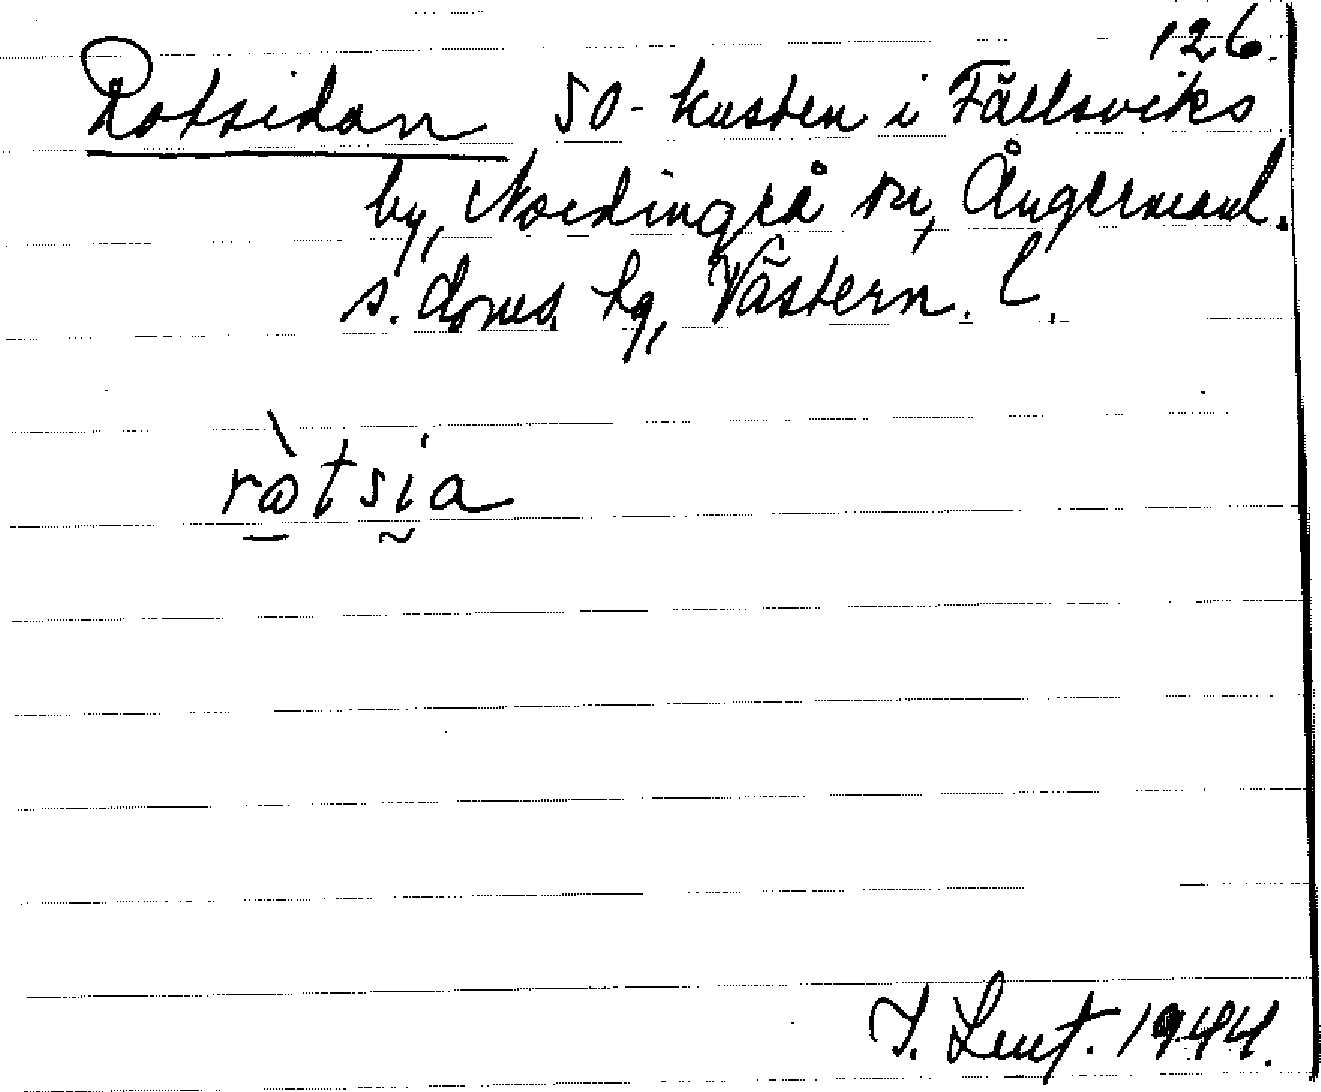 126.
Rotsidan SO-kusten i Fällsviks
by, Nordingrå sn, Ångermanl.
s. doms. hg, Västern. l.
ròtsia
I. Lent. 1944.